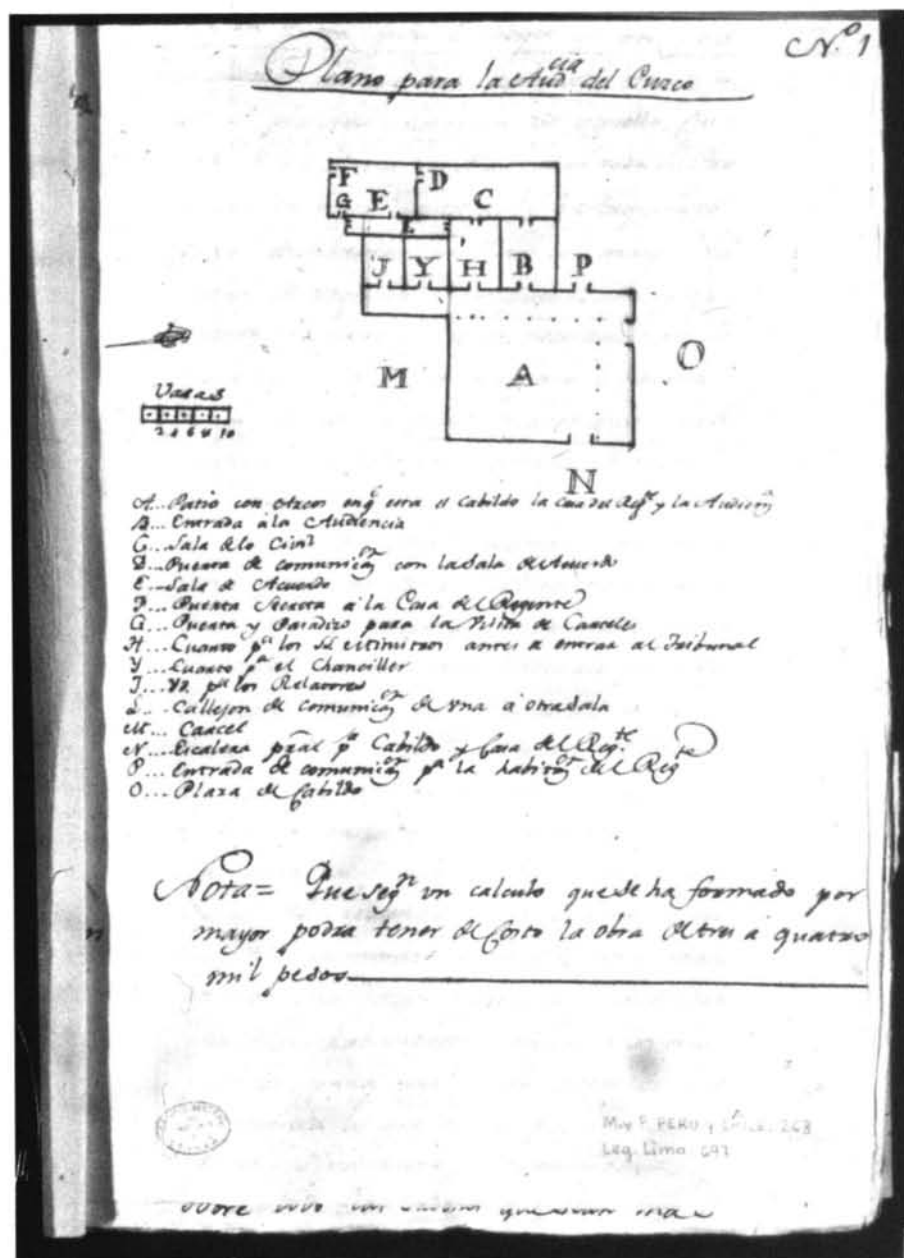 N.º 1
Plano para la Aud.cia del Cuzco
F D
G E C
L
J Y H B P
M A O
Varas
2 4 6 8 10
N
A... Patio con Arcos en q.e esta el Cabildo la Casa del Reg.te y la Audien.a
B... Entrada à la Audiencia
C... Sala de lo Civil
D... Puerta de comunicac.on con la Sala de Acuerdo
E... Sala de Acuerdo
F... Puerta Secreta a la Casa del Regente
G... Puerta y Paradizo para la Visita de Carceles
H... Cuarto p.a los S.S. Ministros antes a entrar al Tribunal
Y... Cuarto p.a el Chanciller
J... Yd. p.a los Relatores
L... Callejon de comunicac.on de vna à otra Sala
M... Carcel
N... Escalera pral p.a Cabildo y Casa del Reg.te
P... Entrada de comunicac.on p.a la habitac.on del Reg.te
O... Plaza de Cabildo
Nota= Que seg.n vn calculo que se ha formado por
mayor podra tener de Costo la obra de tres a quatro
mil pesos
M. y P. PERU y CHILE. 263
Leg. Lima 697